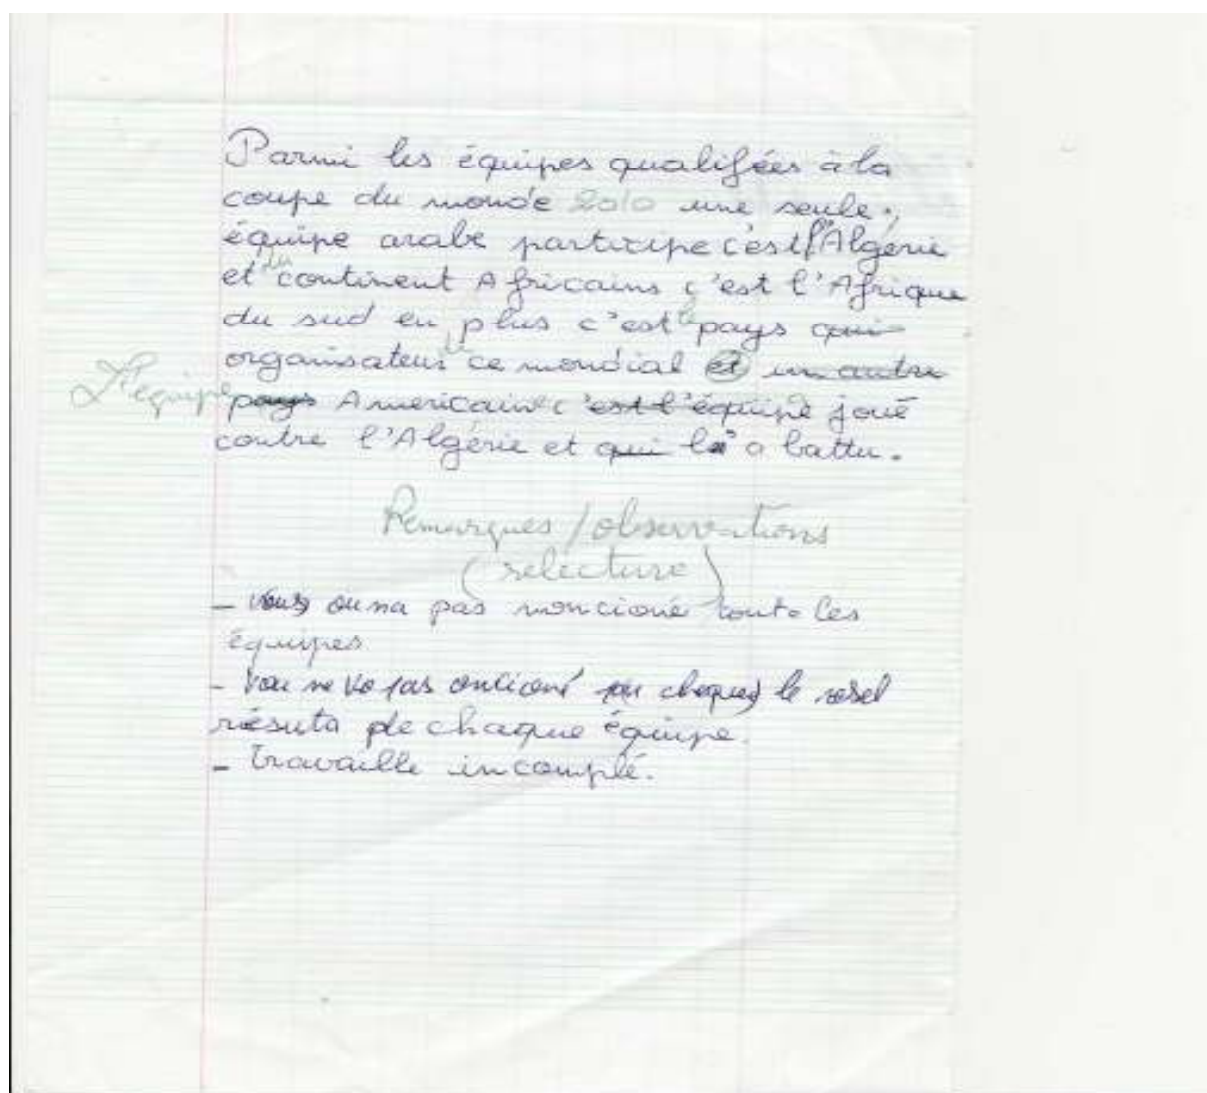 Parmi les équipes qualifées à la
coupe du monde 2010 une seule
équipe arabe participe c'est l'Algérie
et du continent Africains c'est l'Afrique
du sud en plus c'est le pays qui
organisateur ce mondial et un autre
L'équipe pays Americaine c'est l'équipe joué
contre l'Algérie et qui la a battu.
Remarques / observations
(relecture)
- Vous on na pas moncioné toute les
équipes
- Vou ne pas le
résuta de chaque équipe.
- travaille incomplé.